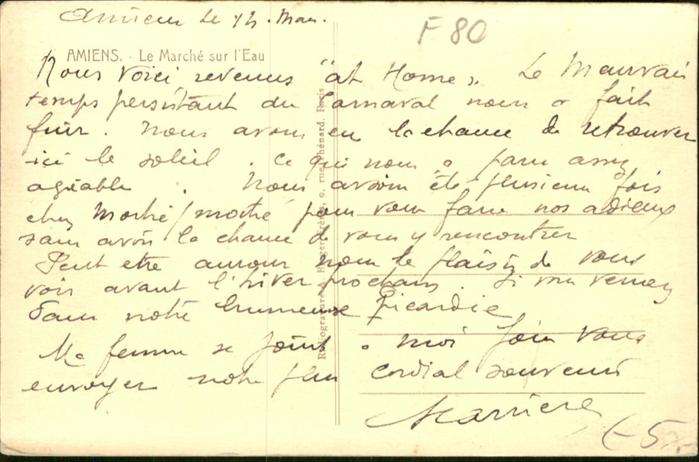 Amiens le 12 Mars
F 80
AMIENS. - Le Marché sur l'Eau
Nous voici revenus "at Home". Le Mauvais
temps persistant du Carnaval nous a fait
fuir. Nous avons eu la chance de retrouver
ici le soleil. Ce qui nous a paru assez
agréable. Nous avions été plusieurs fois
chez pour vous faire nos adieux
sans avoir la chance de vous y rencontrer
Peut etre aurons nous le plaisir de vous
voir avant l'hiver prochain. Si vous venez
dans notre brumeuse Picardie
Ma femme se joint a moi pour vous
envoyer notre plus cordial souvenir
5